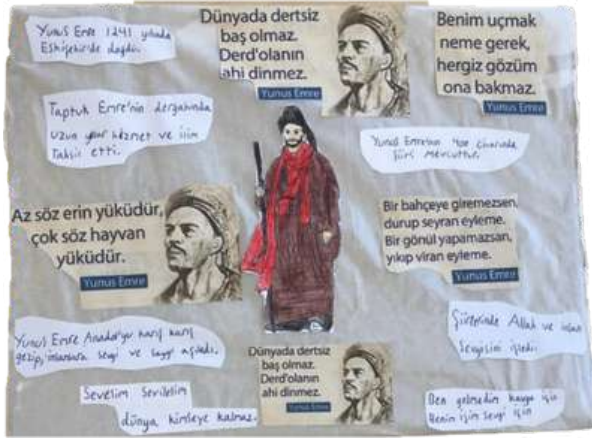 Yunus Emre 1241 yılında
Eskişehir'de doğdu.
Dünyada dertsiz
baş olmaz.
Derd'olanın
ahi dinmez.
Yunus Emre
Benim uçmak
neme gerek,
hergiz gözüm
ona bakmaz.
Yunus Emre
Taptuk Emre'nin dergahında
uzun yıllar hizmet ve ilim
Tahsil etti.
Yunus Emrenin civarında
Şiiri Mevcuttur.
Az söz erin yüküdür,
çok söz hayvan
yüküdür.
Yunus Emre
Bir bahçeye giremezsen,
durup seyran eyleme.
Bir gönül yapamazsan,
yıkıp viran eyleme.
Yunus Emre
Yunus Emre Anadolu'yu karış karış
gezip, insanlara sevgi ve saygı aşıladı.
Şiirlerinde Allah ve insan
Sevgisini işledi.
Dünyada dertsiz
baş olmaz.
Derd'olanın
ahi dinmez.
Yunus Emre
Sevelim Sevilelim
dünya kimseye kalmaz.
Ben gelmedim kavga için
Benim işim sevgi için